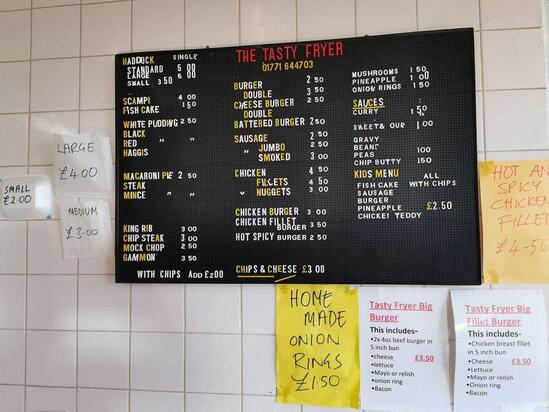 THE TASTY FRYER
01771 644703
HADDOCK SINGLE
STANDARD 5 00
LARGE 6 00
SMALL 3 50
SCAMPI 4 00
FISH CAKE 1 50
WHITE PUDDING 2 50
BLACK " "
RED " "
HAGGIS
MACARONI PIE 2 50
STEAK " "
MINCE " "
KING RIB 3 00
CHIP STEAK 3 00
MOCK CHOP 2 50
GAMMON 3 50
WITH CHIPS ADD £2 00
BURGER 2 50
DOUBLE 3 50
CHEESE BURGER 2 50
DOUBLE
BATTERED BURGER 2 50
SAUSAGE 2 50
" JUMBO 2 50
" SMOKED 3 00
CHICKEN 4 50
FILLETS 4 50
" NUGGETS 3 00
CHICKEN BURGER 3 00
CHICKEN FILLET
BURGER 3 50
HOT SPICY BURGER 2 50
CHIPS & CHEESE £3 00
MUSHROOMS 1 50
PINEAPPLE 1 00
ONION RINGS 1 50
SAUCES
CURRY 1 50
SWEET & OUR 1 00
GRAVY
BEANS 1 00
PEAS 1 00
CHIP BUTTY 1 50
KIDS MENU ALL
FISH CAKE WITH CHIPS
SAUSAGE
BURGER
PINEAPPLE £2.50
CHICKEN TEDDY
LARGE
£4.00
SMALL
£2.00
MEDIUM
£3-00
HOME
MADE
ONION
RINGS
£1.50
Tasty Fryer Big
Burger
This includes-
•2x 4oz beef burger in
5 inch bun
•cheese £3.50
•lettuce
•Mayo or relish
•onion ring
•Bacon
Tasty Fryer Big
Fillet Burger
This includes-
•Chicken breast fillet
in 5 inch bun
•cheese £3.50
•Lettuce
•Mayo or relish
•Onion ring
•Bacon
HOT AN
SPICY
CHICKEN
FILLET
£4-50